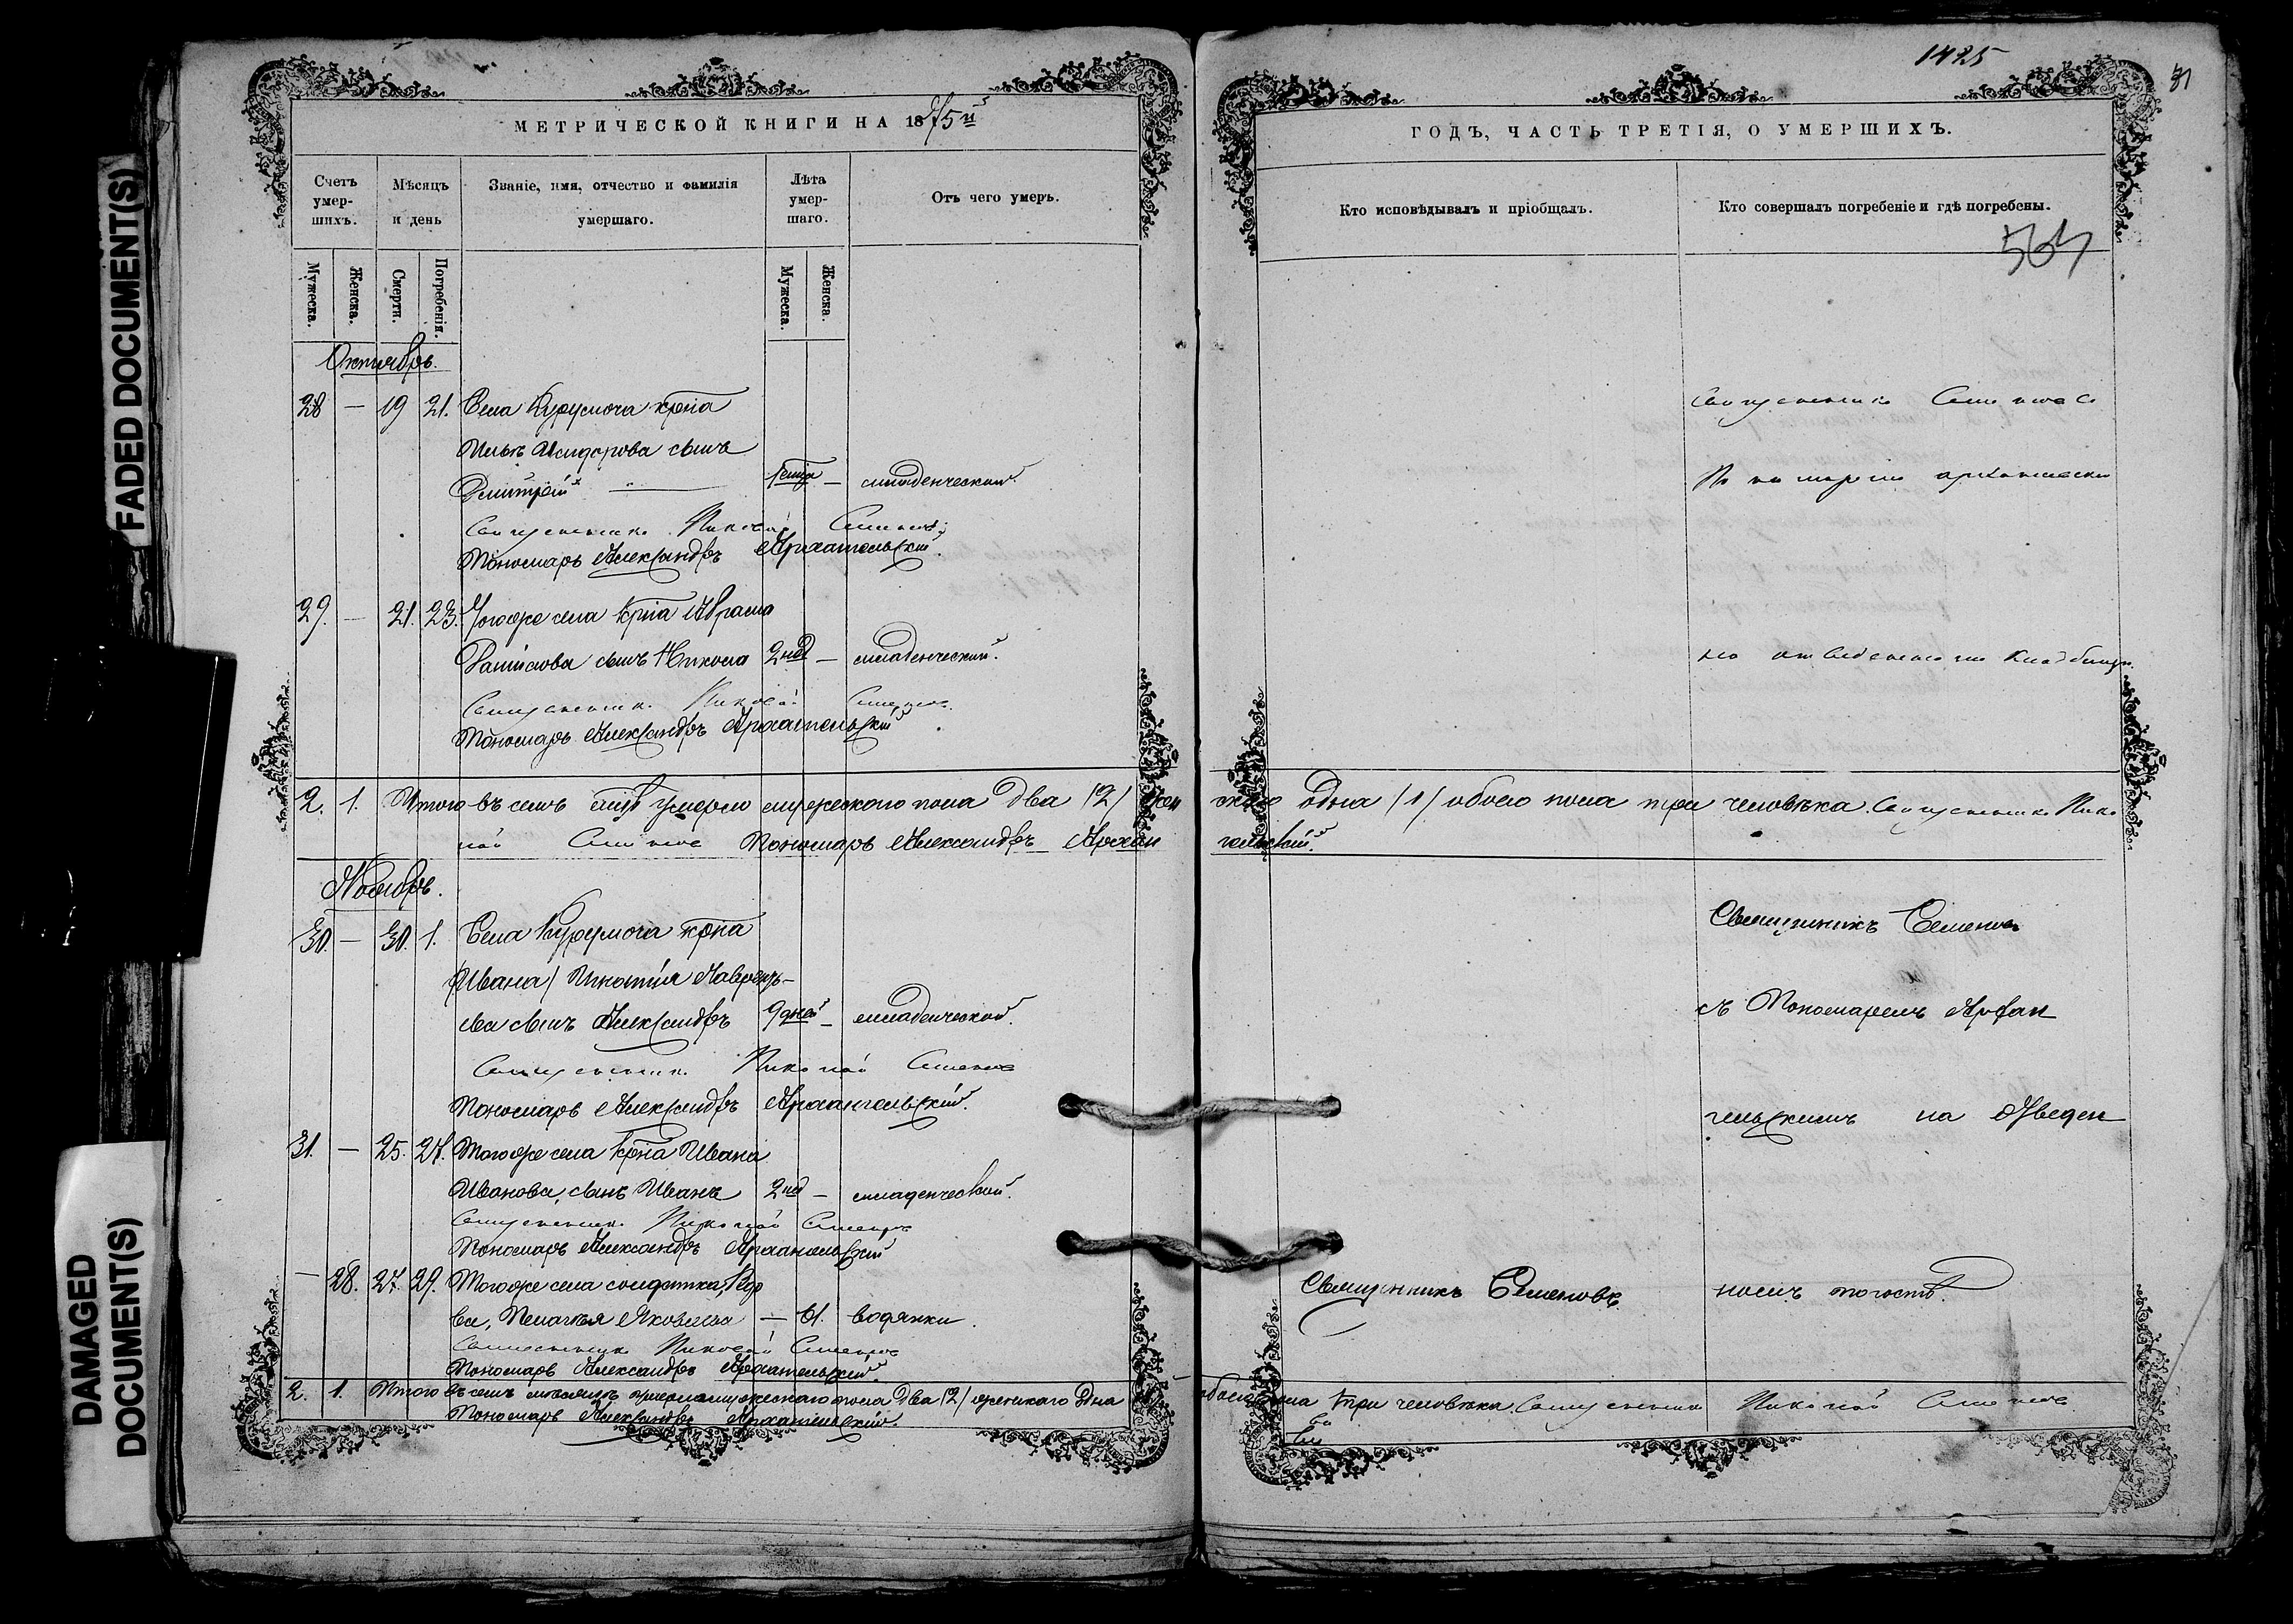 FADED DOCUMENT(S)
DAMAGED
DOCUMENT(S)
МЕТРИЧЕСКОЙ КНИГИ НА 1875й
Счетъ умер-шихъ.
Мѣсяцъ и день
Званіе, имя, отчество и фамилія умершаго.
Лѣта умер-шаго.
Отъ чего умеръ.
Мужеска.
Женска.
Смерти.
Погребенія.
Мужеска.
Женска.
Октябрь.
28 — 19 21. Села Курумоча крна
сынъ
Дмитрій — младенческой.
Священникъ Николай Семеновъ
Пономарь Александръ Архангельскій.
29. — 21. 23. Тогоже села крна Абрама
Данилова сынъ Никола 2 нед — младенческий.
Священникъ Николай Семеновъ
Пономарь Александръ Архангельскій
2. 1. Итого въ семъ умерло мужескаго пола два /2/ жен
лай Семеновъ Пономарь Александръ Архан
Ноябрь.
30. — 30. 1. Села Курумоча крна
Ивана / Игнатія Лаврентъ-
ева сынъ Александръ 9 дней — младенческой.
Священникъ Николай Семеновъ
Пономарь Александръ Архангельскій.
31. — 25. 27. Тогоже села крна Ивана
Иванова, сынъ Иванъ 2 нед — младенческой.
Священникъ Николай Семеновъ
Пономарь Александръ Архангельскій
— 28. 27. 29. Тогоже села солдатка,
ва, Пелагея Яковлева — 61. водянки.
Священникъ Николай Семеновъ
Пономарь Александръ Архангельскій.
2. 1. Итого въ семъ месяцѣ умерло мужескаго пола два /2/ женскаго одна
Пономарь Александръ Архангельскій
1425
ГОДЪ, ЧАСТЬ ТРЕТІЯ, О УМЕРШИХЪ.
Кто исповѣдывалъ и пріобщалъ.
Кто совершалъ погребеніе и гдѣ погребены.
Священникъ Семеновъ съ
на отведенномъ кладбищѣ.
скаго одна /1/ обоего пола три человѣка. Священникъ Нико
гельской.
Священникъ Семеновъ
съ Пономаремъ Архан
гельскимъ на отведен
Священникъ Семеновъ
номъ погостѣ.
обоего пола три человѣка. Священникъ Николай Семеновъ